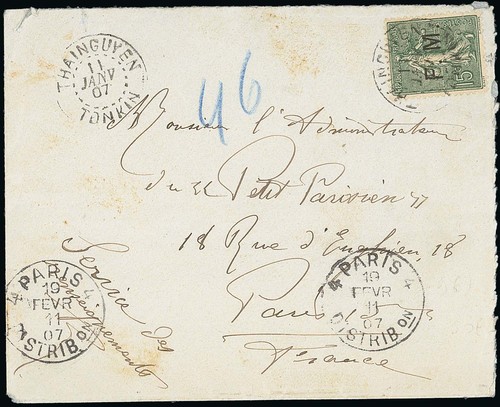 THAINGUYEN
11
JANV
07
TONKIN
46
F.M.
15
Monsieur l'Administrateur
du "Petit Parisien"
18 Rue d'Enghien 18
Paris
France
Service des
renseignements
4 PARIS 4
19
FEVR
11
07
DISTRIB.ON
4 PARIS 4
19
FEVR
11
07
DISTRIB.ON